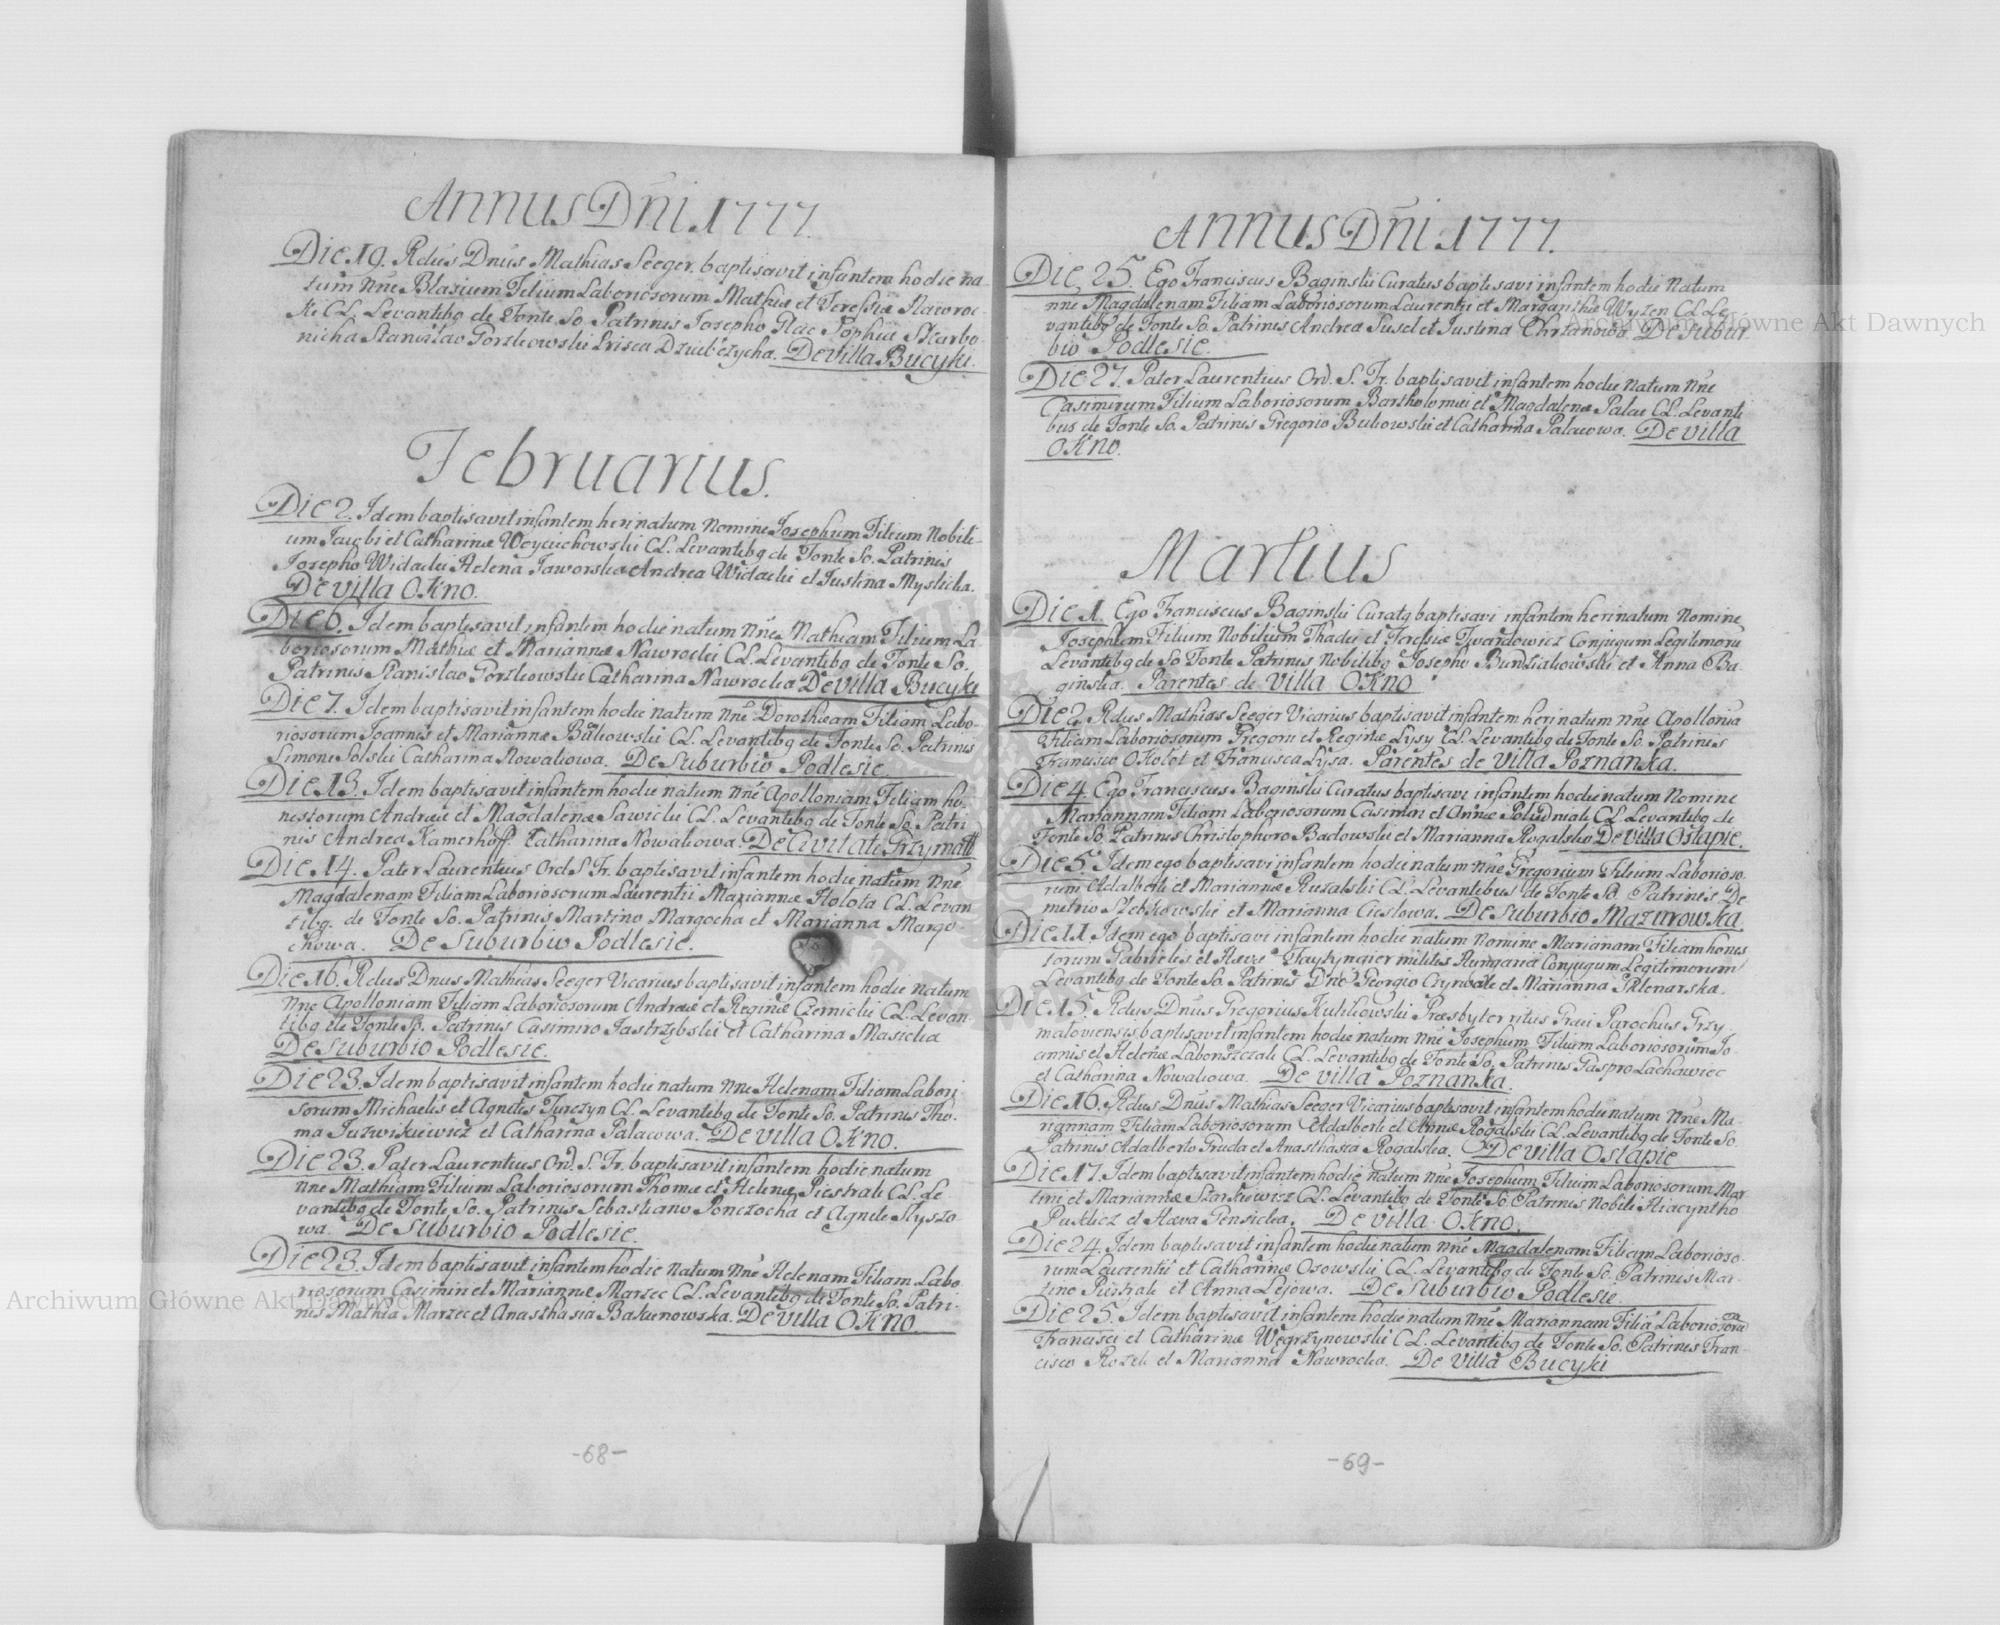 Annus Dni 1777.
Die 19. Rdus Dnus Mathias Seeger. baptisavit infantem hodie na-
tum nne Blasium Filium Laboriosorum Mathiæ et Teressiæ Nawroc-
ki CL. Levantibq de Fonte So Patrinis Josepho Plac Sophia Skarbo-
nicha Stanislao Porzkowski Prisca Dziubczycha. De villa Bucyki.
Februarius.
Die 2. Idem baptisavit infantem heri natum Nomine Josephum Filium Nobili-
um Jacobi et Catharinæ Woyciechowski CL. Levantibq de Fonte So. Patrinis
Josepho Widacki Helena Jaworska Andrea Widacki et Justina Myslicka.
De villa OKno.
Die 6. Idem baptisavit infantem hodie natum nne Mathiam Filium La-
boriosorum Mathiæ et Mariannæ Nawrocki CL. Levantibq de Fonte So.
Patrinis Stanislao Porzkowski Catharina Nawrocka De villa Bucyki
Die 7. Idem baptisavit infantem hodie natum nne Dorotheam Filiam Labo-
riosorum Joannis et Mariannæ Bukowski CL. Levantibq de Fonte So. Patrinis
Simone Solski Catharina Nowakowa. De Suburbio Podlesie.
Die 13. Idem baptisavit infantem hodie natum nne Apolloniam Filiam ho-
nestorum Andreæ et Magdalenæ Sawicki CL. Levantibq de Fonte So. Patri
nis Andrea Kamerhoff Catharina Nowakowa. De Civitate Grzymałł
Die 14. Pater Laurentius Ord S Fr. baptisavit infantem hodie natum nne
Magdalenam Filiam Laboriosorum Laurentii Mariannæ Holota CL. Levan
tibq. de Fonte So. Patrinis Martino Margocha et Marianna Margo-
chowa. De Suburbio Podlesie.
Die 16. Rdus Dnus Mathias Seeger Vicarius baptisavit infantem hodie natum
nne Apolloniam Filiam Laboriosorum Andreæ et Reginæ Czernicki CL. Levan-
tibq de Fonte So. Patrinis Casimiro Jastrzębski et Catharina Masicka
De Suburbio Podlesie.
Die 23. Idem baptisavit infantem hodie natum nne Helenam Filiam Labori
sorum Michaelis et Agnetis Jurczyn CL. Levantibq de Fonte So. Patrinis Tho-
ma Juzwikiewicz et Catharina Palacowa. De villa OKno.
Die 23. Pater Laurentius Ord. S. Fr. baptisavit infantem hodie natum
nne Mathiam Filium Laboriosorum Thomæ et Helenæ Piestrak CL. Le
vantibq de Fonte So. Patrinis Sebastiano Ponczocha et Agnete Slyszo-
wa. De Suburbio Podlesie.
Die 23. Idem baptisavit infantem hodie natum nne Helenam Filiam Labo
riosorum Casimiri et Mariannæ Marzec CL. Levantibq de Fonte So. Patri-
nis Mathia Marzec et Anasthasia Bakunowska. De villa OKno.
-68-
Annus Dni 1777.
Die 25. Ego Franciscus Baginski Curatus baptisavi infantem hodie natum
nne Magdalenam Filiam Laboriosorum Laurentii et Margarithæ Wyzen CL Le
vantibq de Fonte So. Patrinis Andrea Pusel et Justina Chrzanowa. De Subur-
bio Podlesie.
Die 27. Pater Laurentius Ord. S. Fr. baptisavit infantem hodie natum nne
Casimirum Filium Laboriosorum Bartholomæi et Magdalenæ Palac CL. Levanti
bus de Fonte So. Patrinis Gregorio Bukowski et Catharina Palacowa. De villa
OKno.
Martius
Die 1. Ego Franciscus Baginski Curatq baptisavi infantem heri natum Nomine
Josephum Filium Nobilium Thadei et Teressiæ Twardowicz Conjugum Legitimoru
Levantibq de So Fonte Patrinis Nobilibq Josepho Bundziakowski et Anna Ba-
ginska. Parentes de villa OKno.
Die 2. Rdus Mathias Seeger Vicarius baptisavit infantem heri natum nne Apollonia
Filiam Laboriosorum Gregorii et Reginæ Lysy CL. Levantibq de Fonte So. Patrinis
Francisco OKolot et Francisca Lysa. Parentes de villa Poznanka.
Die 4. Ego Franciscus Baginski Curatus baptisavi infantem hodie natum Nomine
Mariannam Filiam Laboriosorum Casimiri et Annæ Poludniak CL Levantibq de
Fonte So. Patrinis Christophoro Badowski et Marianna Rogalska De villa Ostapie.
Die 5. Idem ego baptisavi infantem hodie natum nne Gregorium Filium Laborioso-
rum Adalberti et Mariannæ Ruzalski CL. Levantibus de Fonte So. Patrinis De-
metrio Slebkowski et Marianna Cieslowa. De Suburbio Mazurowka.
Die 11. Idem ego baptisavi infantem hodie natum nomine Marianam Filiam hones
torum Gabrielis et Hævæ militis Hungarici Conjugum Legitimorum
Levantibq de Fonte So. Patrinis Dno Georgio et Marianna Sklenarska.
Die 15. Rdus Dnus Gregorius Kulikowski Præsbyter ritus Græci Parochus Grzy
matoviensis baptisavit infantem hodie natum nne Josephum Filium Laboriosorum Jo-
annis et Helenæ CL. Levantibq de Fonte So. Patrinis Gaspro Lachawiec
et Catharina Nowakowa. De villa Poznanka.
Die 16. Rdus Dnus Mathias Seeger Vicarius baptisavit infantem hodie natum nne Ma-
riannam Filiam Laboriosorum Adalberti et Annæ Rogalski CL. Levantibq de Fonte So.
Patrinis Adalberto Gruda et Anasthasia Rogalska. De villa Ostapie
Die 17. Idem baptisavit infantem hodie natum nne Josephum Filium Laboriosorum Mar-
tini et Mariannæ Stankiewicz CL. Levantibq de Fonte So. Patrinis Nobili Hiacyntho
et Hæva Gensicka. De villa OKno.
Die 24. Idem baptisavit infantem hodie natum nne Magdalenam Filiam Laborioso-
rum Laurentii et Catharinæ Osowski CL. Levantibq de Fonte So. Patrinis Mar-
tino Piestrak et Anna Lejowa. De Suburbio Podlesie.
Die 25. Idem baptisavit infantem hodie natum nne Mariannam Filia Laboriosoru
Francisci et Catharinæ Węgrzynowski CL. Levantibq de Fonte So. Patrinis Fran-
cisco Rozek et Marianna Nawrocka. De villa Bucyki
-69-
Archiwum Główne Akt Dawnych
Archiwum Główne Akt Dawnych